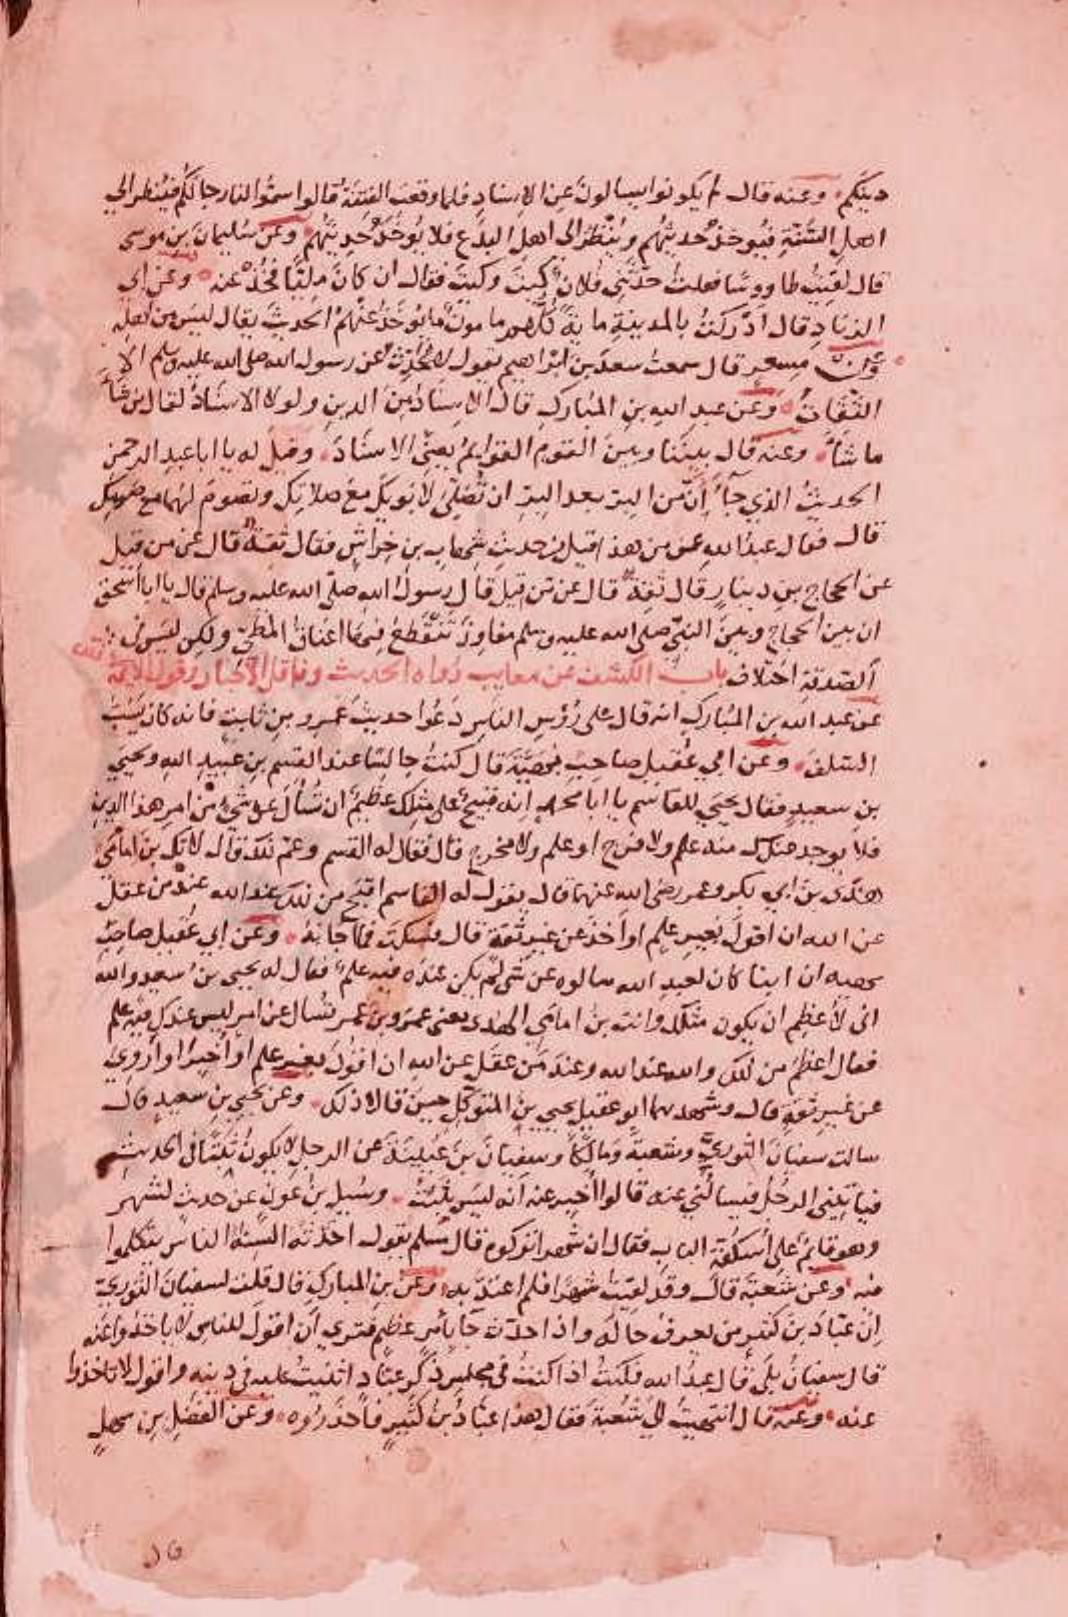 دينكم وعنه قال لم يكونوا يسالون عن الاسناد فلما وقعت الفتنة قالوا سموا لنا رجالكم فينظر الى
اهل السنة فيوخذ حديثهم وينظر الى اهل البدع فلا يوخذ حديثهم وعن سليمان بن موسى
قال لقيت طاووسا فقلت حدثني فلان كيت وكيت فقال ان كان مليا فخذ عنه وعن ابي
الزناد قال ادركت بالمدينة ماية كلهم مامون ما يوخذ عنهم الحديث يقال ليس من اهله
وعن مسعر قال سمعت سعد بن ابراهيم يقول لا يحدث عن رسول الله صلى الله عليه وسلم الا
الثقات وعن عبد الله بن المبارك قال الاسناد من الدين ولولا الاسناد لقال من شاء
ما شاء وعنه قال بيننا وبين القوم القوايم يعنى الاسناد وقيل له يا ابا عبد الرحمن
الحديث الذي جاء ان من البر بعد البر ان تصلي لابويك مع صلاتك وتصوم لهما مع صومك
قال فقال عبد الله عمن هذا قيل من حديث شهاب بن خراش فقال ثقة قال عن من قيل
عن الحجاج بن دينار قال ثقة قال عن من قيل قال رسول الله صلى الله عليه وسلم قال يا ابا اسحق
ان بين الحجاج وبين النبي صلى الله عليه وسلم مفاوز تنقطع فيها اعناق المطي ولكن ليس في
الصدقة اختلاف باب الكشف عن معايب رواه الحديث وناقل الاخبار وقول الايمة
عن عبد الله بن المبارك انه قال على رؤس الناس دعوا حديث عمرو بن ثابت فانه كان يسب
السلف وعن ابي عقيل صاحب بهية قال كنت جالسا عند القسم بن عبيد الله ويحيى
بن سعيد فقال يحيى للقاسم يا ابا محمد انه قبيح على مثلك عظيم ان تسال عن شي من امر هذا الدين
فلا يوجد عندك منه علم ولا فرج او علم ولا مخرج قال فقال له القسم وعم ذلك قال لانك بن امامي
هدى بن ابي بكر وعمر رضى الله عنهما قال يقول له القاسم اقبح من ذلك عند الله عند من عقل
عن الله ان اقول بغير علم او اخذ عن غير ثقة قال فسكت فما اجابه وعن ابي عقيل صاحب
بهيه ان ابنا كان لعبد الله سالوه عن شي لم يكن عنده فيه علم فقال له يحيى بن سعيد والله
انى لاعظم ان يكون مثلك وانت بن امامي الهدى يعنى عمر وبن عمر تسال عن امر ليس عندك فيه علم
فقال اعظم من ذلك والله عند الله وعند من عقل عن الله ان اقول بغير علم او اخبر او اروي
عن غير ثقة قال وشهدهما ابو عقيل يحيى بن المتوكل حين قالا ذلك وعن يحيى بن سعيد قال
سالت سفيان الثوري وشعبة ومالكا وسفيان بن عيينة عن الرجل لا يكون ثبتا في الحديث
فياتيني الرجل فيسالني عنه قالوا اخبر عنه انه ليس بثبت وسيل بن عون عن حديث لشهر
وهو قايم على اسكفة الباب فقال ان شهرا تركوه قال مسلم يقول اخذته السنة الناس تكلموا
فيه وعن شعبة قال وقد لقيت شهرا فلم اعتد به وعن بن المبارك قال قلت لسفيان الثوري
ان عباد بن كثير من تعرف حاله واذا حدث جا بامر عظيم فترى ان اقول للناس لا ياخذوا عنه
قال سفيان بلى قال عبد الله فكنت اذا كنت في مجلس ذكر عباد اثنيت عليه في دينه واقول لا تاخذوا
عنه وعنه قال انتهيت الى شعبة فقال هذا عباد بن كثير فاحذروه وعن الفضل بن سهل